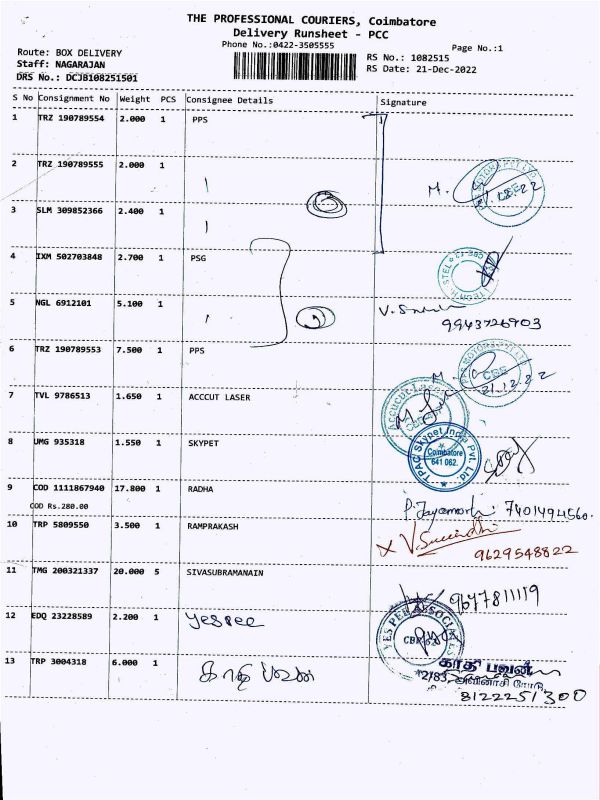 THE PROFESSIONAL COURIERS, Coimbatore
Delivery Runsheet - PCC
Phone No.:0422-3505555
Page No.:1
Route: BOX DELIVERY
Staff: NAGARAJAN
DRS No.: DCJB108251501
RS No.: 1082515
RS Date: 21-Dec-2022
S No Consignment No Weight PCS Consignee Details Signature
1 TRZ 190789554 2.000 1 PPS
2 TRZ 190789555 2.000 1
3 SLM 309852366 2.400 1
4 IXM 502703848 2.700 1 PSG
5 NGL 6912101 5.100 1
9943726903
6 TRZ 190789553 7.500 1 PPS
21.12.22
7 TVL 9786513 1.650 1 ACCCUT LASER
8 UMG 935318 1.550 1 SKYPET
TPAC Skypet India Pvt. Ltd
Coimbatore
641 062.
9 COD 1111867940 17.800 1 RADHA
COD Rs.280.00
7401494560.
10 TRP 5809550 3.500 1 RAMPRAKASH
9629548822
11 TMG 200321337 20.000 5 SIVASUBRAMANAIN
9677811119
12 EDQ 23228589 2.200 1 yespee
13 TRP 3004318 6.000 1 காதி பவன்
காதி பவன்
2/83, அவினாசி ரோடு
8122251300